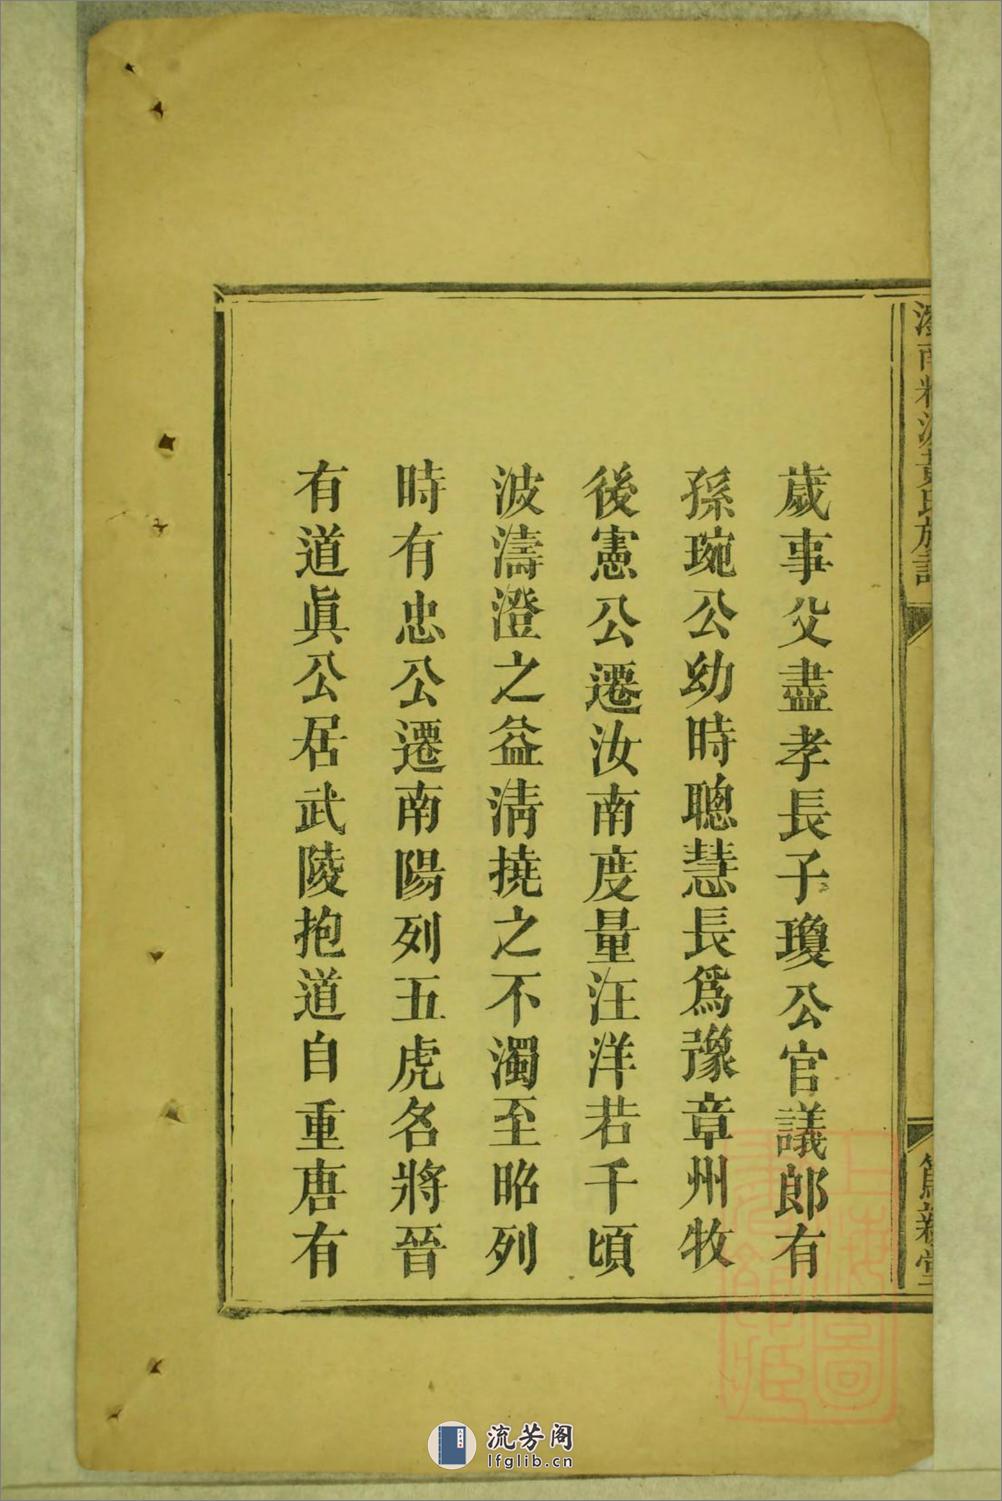 歲事父盡孝長子瓊公官議郎有
孫琬公幼時聰慧長爲豫章州牧
後憲公遷汝南度量汪洋若千頃
波濤澄之益清撓之不濁至昭列
時有忠公遷南陽列五虎名將晉
有道眞公居武陵抱道自重唐有
南 黃氏族譜
篤新堂
上海圖書館藏
流芳阁
lfglib.cn